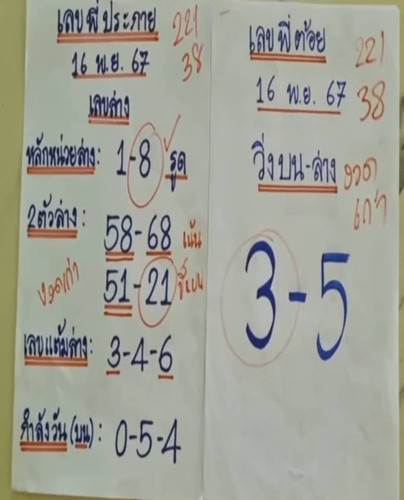 เลขพี่ประภาย 221
16 พ.ย. 67 38
เลขล่าง
หลักหน่วยล่าง: 1-8 รูด
2ตัวล่าง: 58-68 เน้น
งวดเก่า 51-21
เลขแต้มล่าง: 3-4-6
กำลังวัน (บน): 0-5-4
เลขพี่ต้อย 221
16 พ.ย. 67 38
วิ่งบน-ล่าง งวด
เก่า
3-5